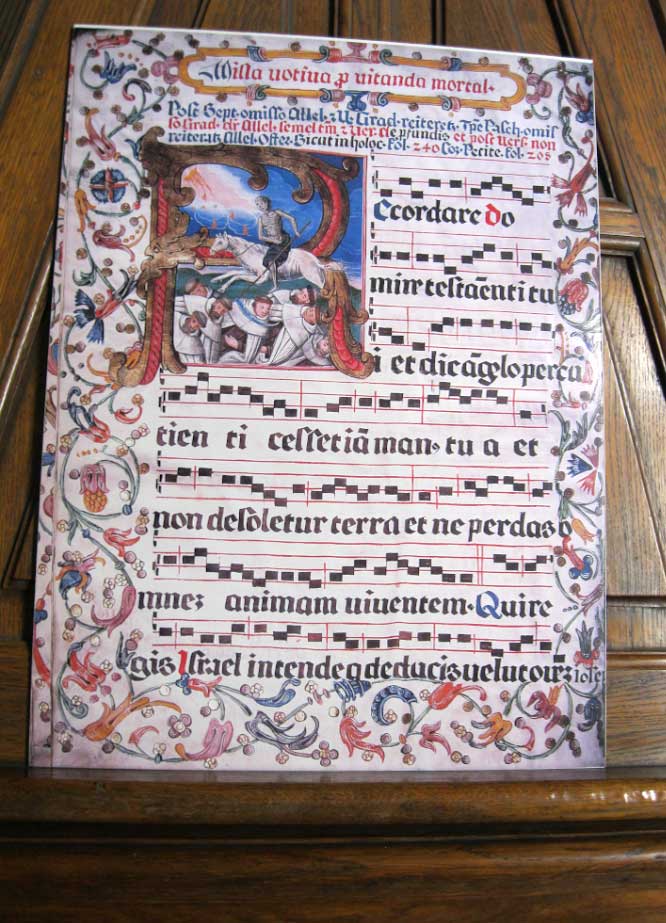 Missa uotiua p uitanda mortal·
Post Sept· omisso Allel· ⁊ V̄ Grad· reiteret·, Tpē Pasch· omis
so Grad· dr̄ Allel· semel tm̄ ⁊ Ver· De pfundis et post vers· non
reiterat· Allel· Offer· Sicut in holoc· fol· 240 Co· Petite· fol· 205
Recordare Do
mine testāenti tu
i et dic āgelo percu
tien ti cesset iā man· tu a et
non desoletur terra et ne perdas o
mnez animam uiuentem· Qui re
gis Israel intende q deducis uelut ouē